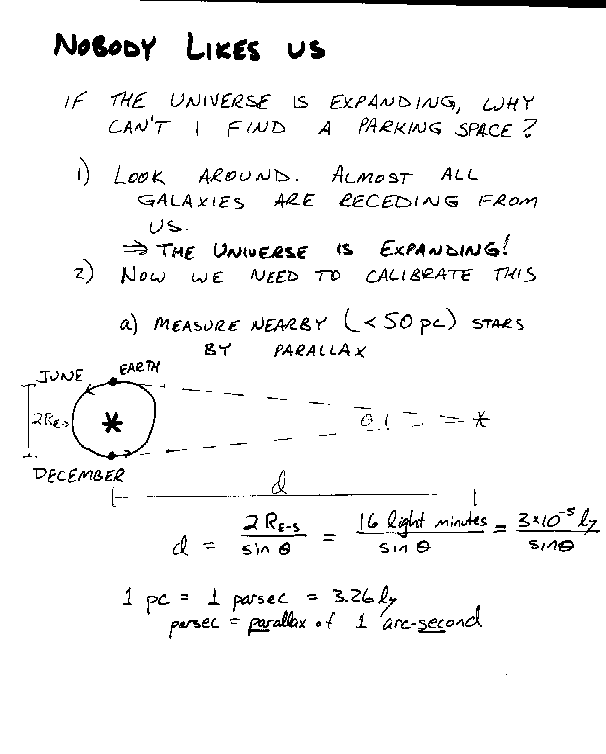 NOBODY LIKES US
IF THE UNIVERSE IS EXPANDING, WHY
CAN'T I FIND A PARKING SPACE?
1) LOOK AROUND. ALMOST ALL
GALAXIES ARE RECEDING FROM
US.
⇒ THE UNIVERSE IS EXPANDING!
2) NOW WE NEED TO CALIBRATE THIS
a) MEASURE NEARBY (<50 pc) STARS
BY PARALLAX
JUNE EARTH
DECEMBER
d
d = 2 R_E-S / sin θ = 16 light minutes / sin θ = 3×10⁻⁵ ly / sin θ
1 pc = 1 parsec = 3.26 ly
parsec = parallax of 1 arc-second